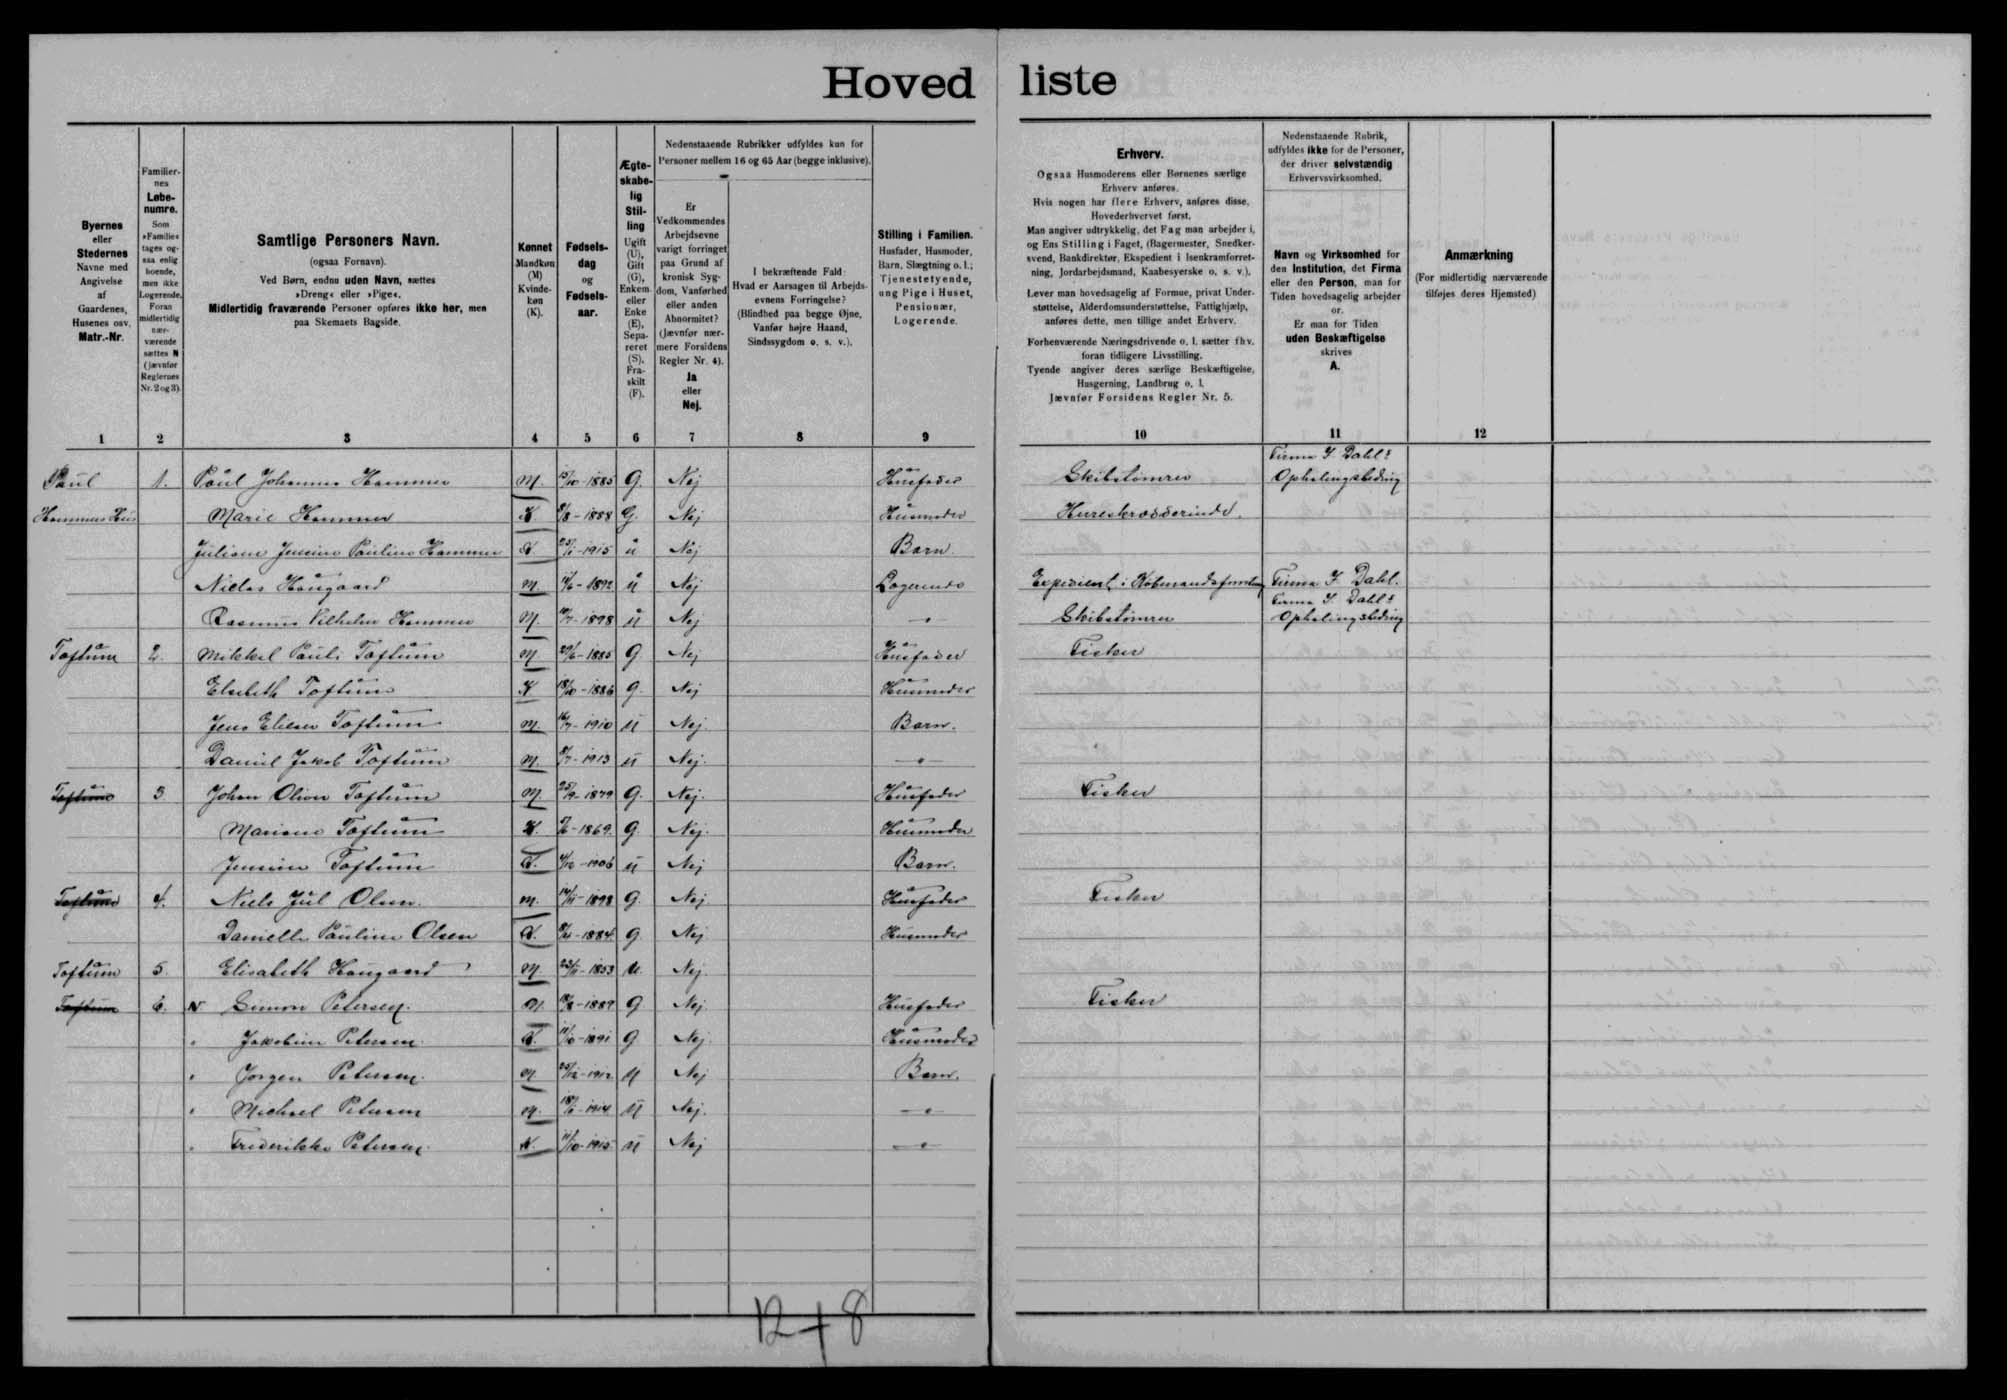 Hoved liste
Byernes
eller
Stedernes
Navne med
Angivelse
af
Gaardenes,
Husenes osv.
Matr.-Nr.
Familier-
nes
Løbe-
numre.
Som
»Familie«
tages og-
saa enlig
boende,
men ikke
Logerende.
Foran
midlertidig
nær-
værende
sættes N
(jævnfør
Reglernes
Nr. 2 og 3).
Samtlige Personers Navn.
(ogsaa Fornavn).
Ved Børn, endnu uden Navn, sættes
»Dreng« eller »Pige«.
Midlertidig fraværende Personer opføres ikke her, men
paa Skemaets Bagside.
Kønnet
Mandkøn
(M)
Kvinde-
køn
(K).
Fødsels-
dag
og
Fødsels-
aar.
Ægte-
skabe-
lig
Stil-
ling
Ugift
(U),
Gift
(G),
Enkem.
eller
Enke
(E),
Sepa-
reret
(S),
Fra-
skilt
(F).
Nedenstaaende Rubrikker udfyldes kun for
Personer mellem 16 og 65 Aar (begge inklusive).
Er
Vedkommendes
Arbejdsevne
varigt forringet
paa Grund af
kronisk Syg-
dom, Vanførhed
eller anden
Abnormitet?
(Jævnfør nær-
mere Forsidens
Regler Nr. 4).
Ja
eller
Nej.
I bekræftende Fald:
Hvad er Aarsagen til Arbejds-
evnens Forringelse?
(Blindhed paa begge Øjne,
Vanfør højre Haand,
Sindssygdom o. s. v.).
Stilling i Familien.
Husfader, Husmoder,
Barn, Slægtning o. l.;
Tjenestetyende,
ung Pige i Huset,
Pensionær,
Logerende.
Erhverv.
Ogsaa Husmoderens eller Børnenes særlige
Erhverv anføres.
Hvis nogen har flere Erhverv, anføres disse,
Hovederhvervet først.
Man angiver udtrykkelig, det Fag man arbejder i,
og Ens Stilling i Faget, (Bagermester, Snedker-
svend, Bankdirektør, Ekspedient i Isenkramforret-
ning, Jordarbejdsmand, Kaabesyerske o. s. v.).
Lever man hovedsagelig af Formue, privat Under-
støttelse, Alderdomsunderstøttelse, Fattighjælp,
anføres dette, men tillige andet Erhverv.
Forhenværende Næringsdrivende o. l. sætter fhv.
foran tidligere Livsstilling.
Tyende angiver deres særlige Beskæftigelse,
Husgerning, Landbrug o. l.
Jævnfør Forsidens Regler Nr. 5.
Nedenstaaende Rubrik,
udfyldes ikke for de Personer,
der driver selvstændig
Erhvervsvirksomhed.
Navn og Virksomhed for
den Institution, det Firma
eller den Person, man for
Tiden hovedsagelig arbejder
or.
Er man for Tiden
uden Beskæftigelse
skrives
A.
Anmærkning
(For midlertidig nærværende
tilføjes deres Hjemsted)
1 2 3 4 5 6 7 8 9 10 11 12
Firma J. Dahls
Paul 1. Paul Johannes Hammer M. 1885 G. Nej Husfader Skibstømrer Ophalingsbeding
Hammers Hus Marie Hammer K 1/8-1888 G. Nej Husmoder
Juliane Jensine Pauline Hammer K. 25/1-1915 u Nej Barn.
Niclas Haugaard M. 1892 u Nej Logerende Expedient i Firma J. Dahl.
Firma J. Dahls
Rasmus Vilhelm Hammer M. 1898 u Nej -"- Skibstømrer Ophalingsbeding
Toftum 2. Mikkel Pauli Toftum M 29/6-1885 G Nej Husfader Fisker
Elsebeth Toftum K 18/10-1886 G. Nej Husmoder
Jens Eliesar Toftum M. 16/7-1910 u Nej. Barn.
Daniel Jakob Toftum M. 8/7-1913 u Nej. -"-
Toftum 3. Johan Oliver Toftum M 25/9-1879 G. Nej. Husfader Fisker
Mariane Toftum K. 1869. G. Nej. Husmoder
Jensine Toftum K. 4/12-1906 u Nej Barn.
Toftum 4. Niels Jul Olsen. M. 14/11-1898 G. Nej Husfader Fisker
Danielle Pauline Olsen K. 1884. G. Nej Husmoder
Toftum 5. Elisabeth Haugaard M. 23/11-1853 u. Nej.
Toftum 6. N Simon Petersen. M. 1889 G Nej. Husfader Fisker
" Jakobine Petersen. K. 11/10-1891. G Nej. Husmoder
" Jørgen Petersen. M. 25/12-1912. u Nej Barn.
" Michael Petersen M. 18/1-1914. u Nej. -"-
" Frederikke Petersen. K. 11/10-1915 u Nej -"-
12+8